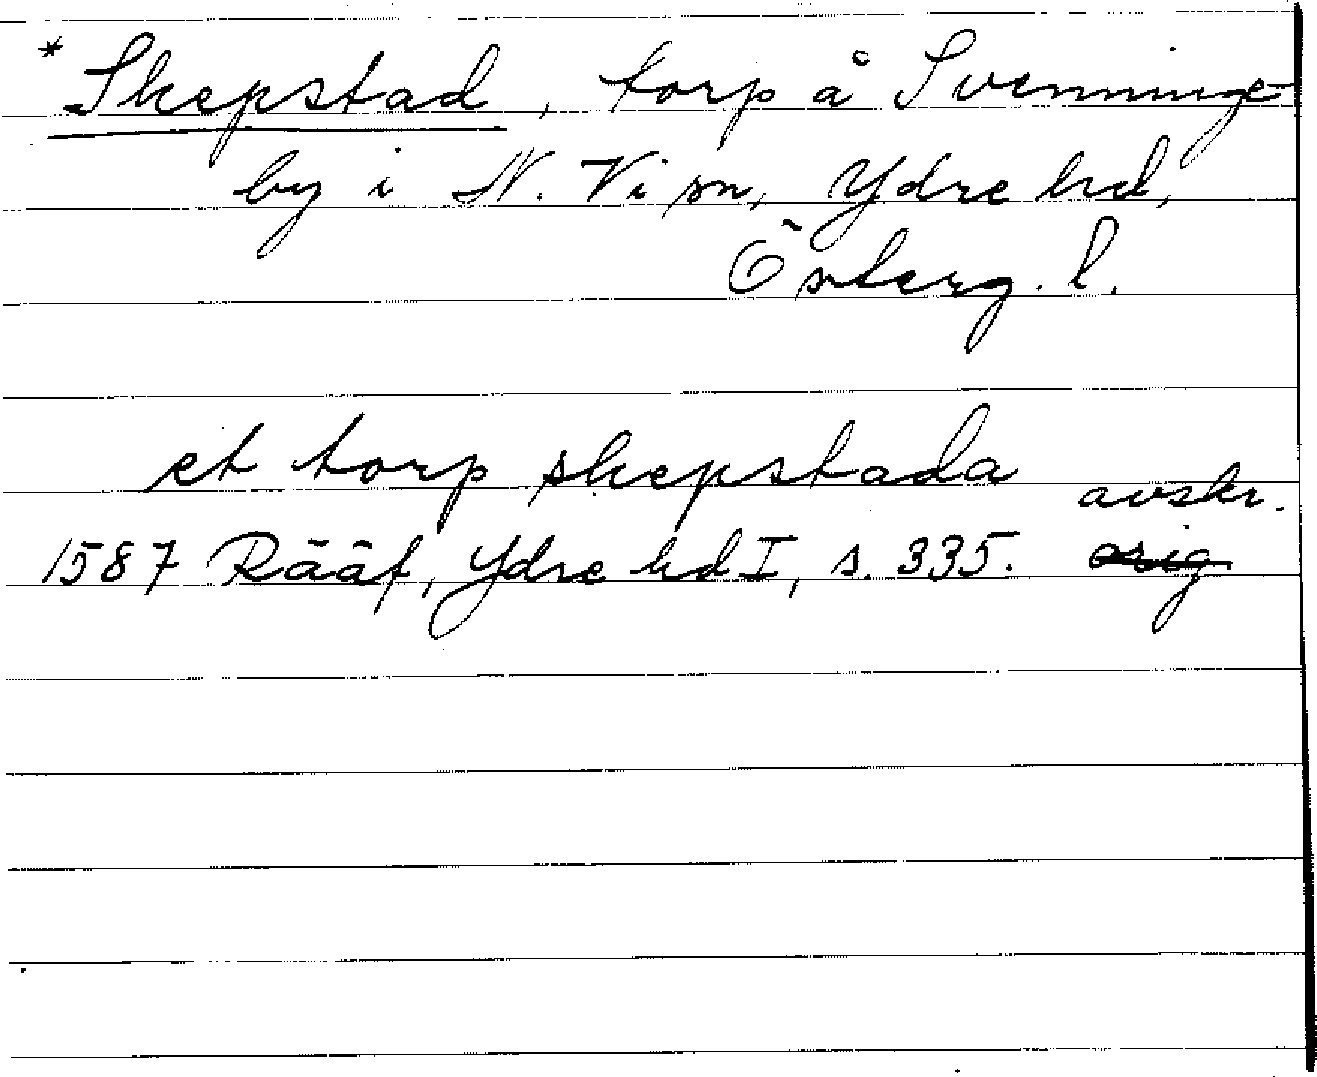 * Skepstad, torp å Svenninge
by i N. Vi sn, Ydre hd,
Österg. l.
et torp skepstada avskr.
1587 Rääf, Ydre hd I, s. 335. orig